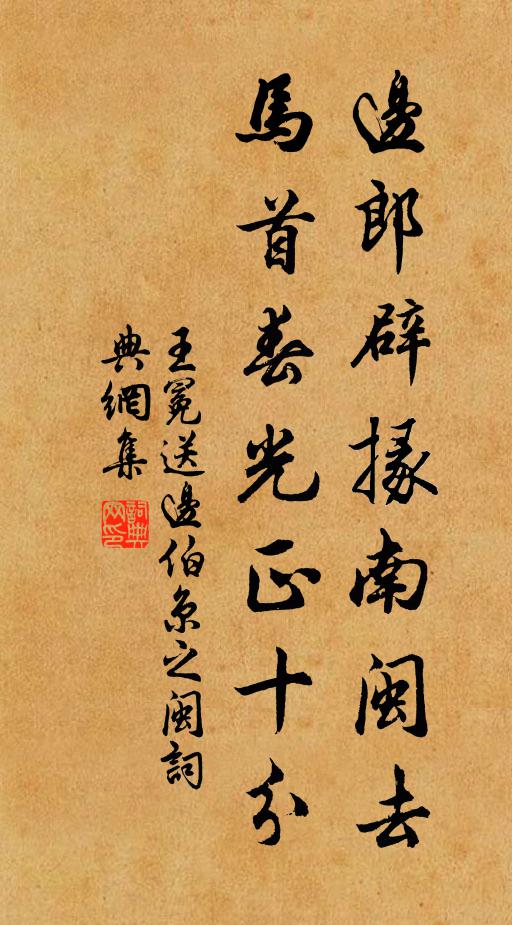 邊郎辟掾南閩去
馬首春光正十分
王冕送邊伯京之閩詞
典網集
詞典网印